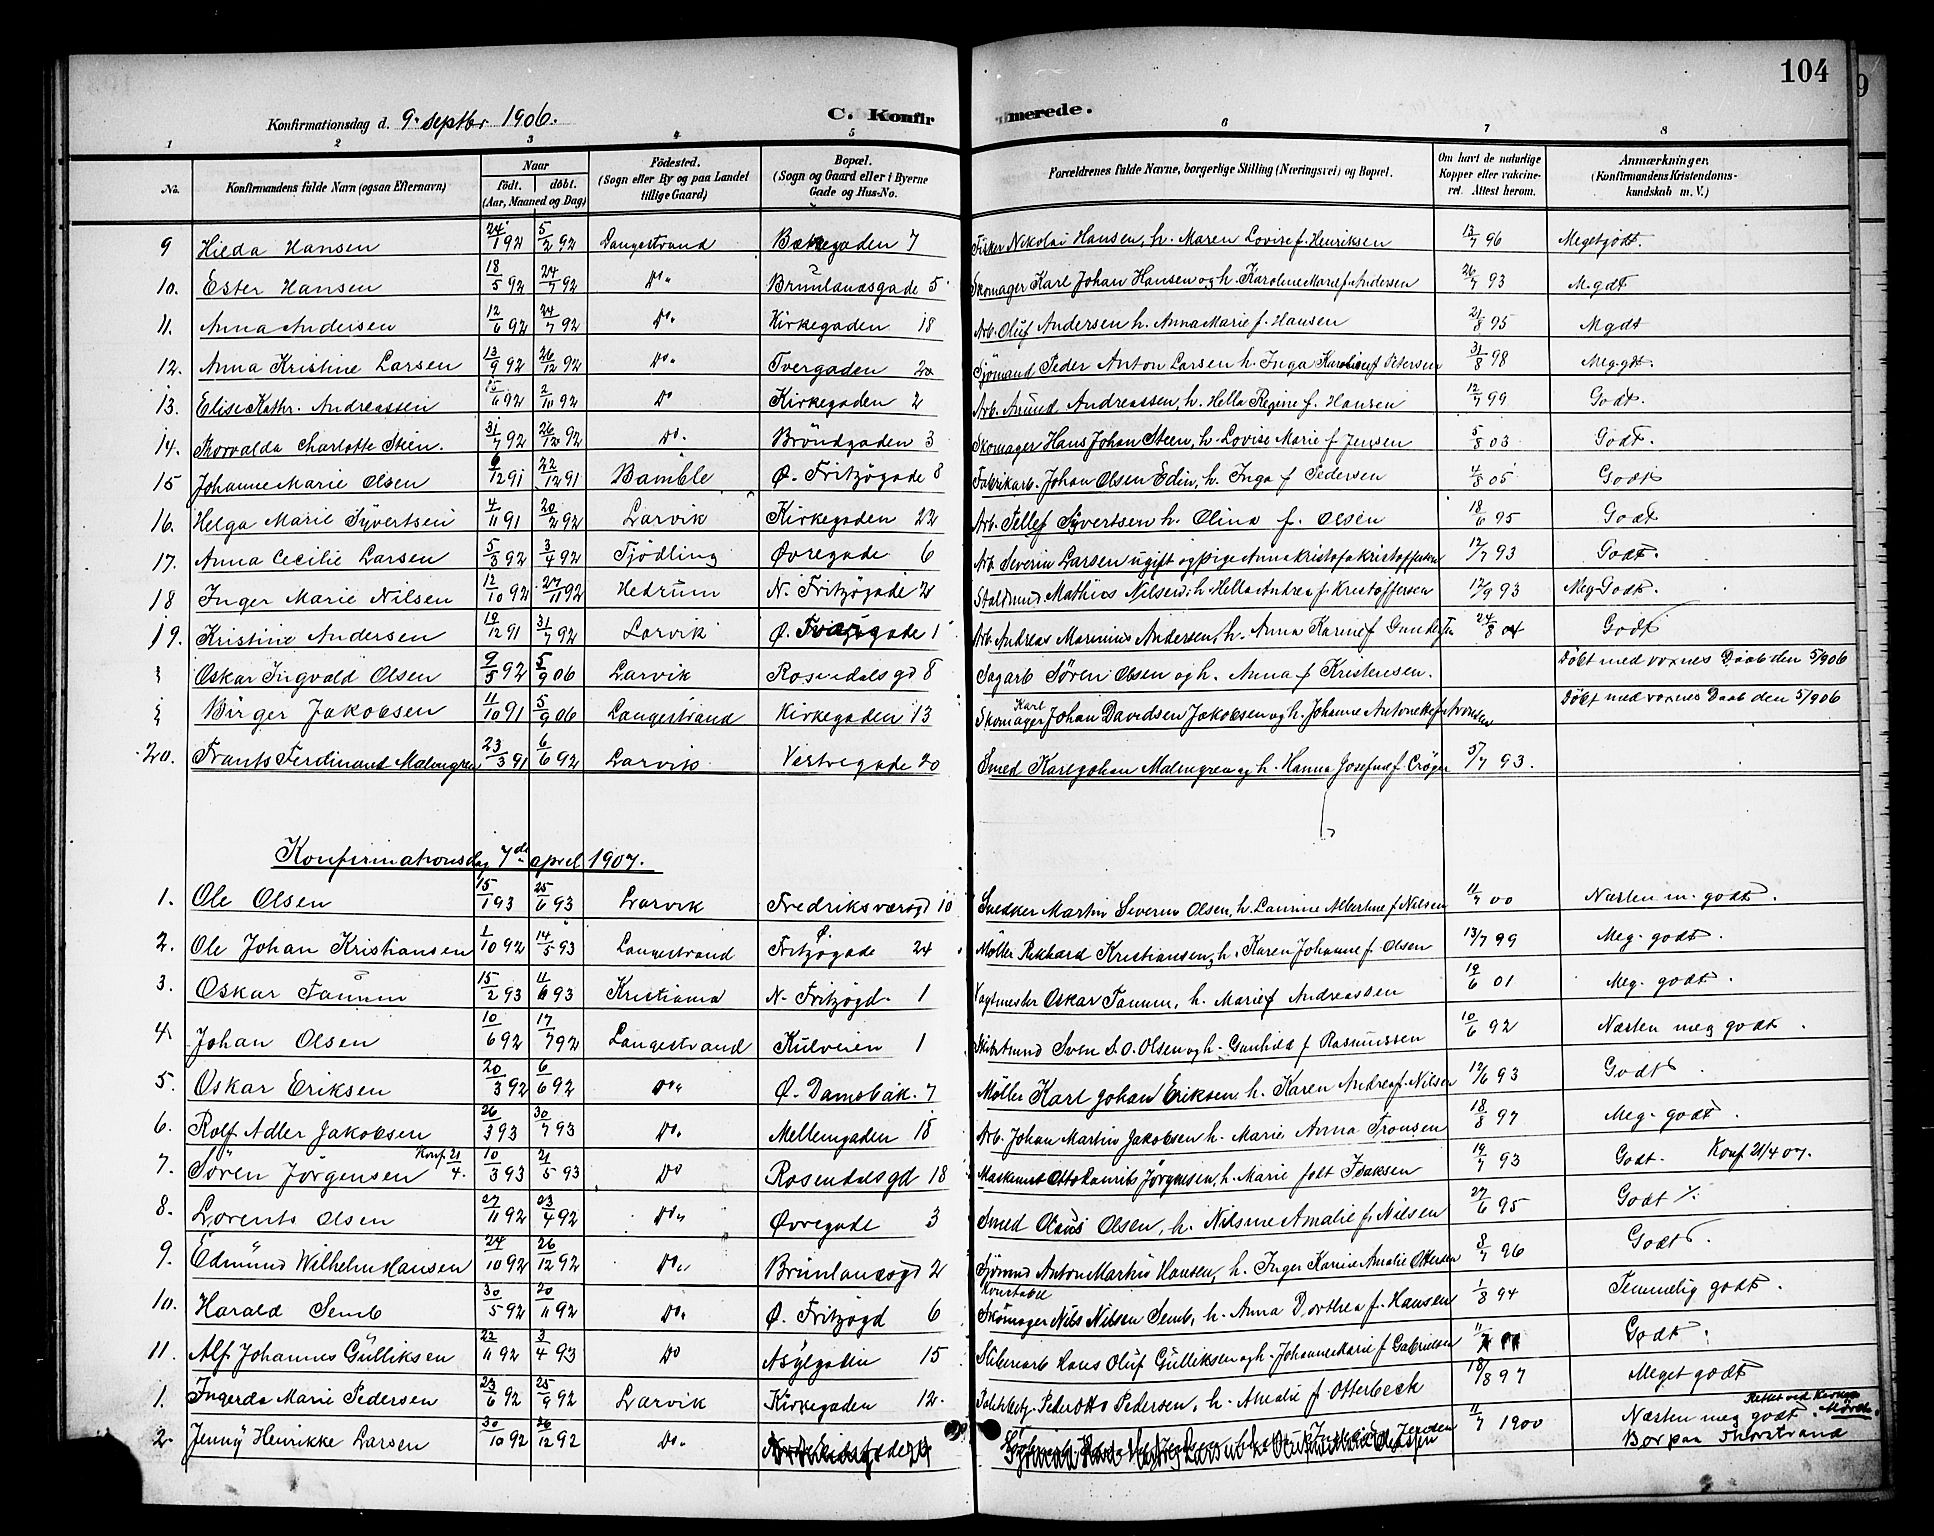 104
9
Konfirmationsdag d. 9. septbr 1906. C. Konfirmerede.
1 2 3 4 5 6 7 8
No. Konfirmandens fulde Navn (ogsaa Efternavn) Naar födt. döbt. (Aar, Maaned og Dag) Födested. (Sogn eller By og paa Landet tillige Gaard) Bopæl. (Sogn og Gaard eller i Byerne Gade og Hus-No. Forældrenes fulde Navne, borgerlige Stilling (Næringsvei) og Bopæl. Om havt de naturlige Kopper eller vakcineret. Attest herom. Anmærkninger. (Konfirmandens Kristendomskundskab m. V.)
9 Hilda Hansen 24/1 92 5/2 92 Langestrand Bækkegaden 7 Fisker Nikolai Hansen, h. Maren Lovise f. Henriksen 13/7 96 Meget godt.
10. Ester Hansen 18/5 92 24/7 92 Do. Brunlanæsgade 5 Skomager Karl Johan Hansen og h. Karoline Marie f. Andersen 26/7 93 M. gdt
11. Anna Andersen 12/6 92 24/7 92 Do. Kirkegaden 18 Arb. Oluf Andersen h. Anna Marie f. Hansen 21/8 95 Mgdt
12. Anna Kristine Larsen 13/9 92 26/12 92 Do. Tvergaden 20 Sjömand Peder Anton Larsen h. Inga Karoline f. Petersen 31/8 98 Meg. gdt.
13. Elise Kathr. Andreassen 15/6 92 2/10 92 Do Kirkegaden 2 Arb. Amund Andreassen, h. Hella Regine f. Hansen 12/7 99 Godt.
14. Thorvalda Charlotte Stein. 31/7 92 26/12 92 Do. Bröndgaden 3 Skomager Hans Johan Steen, h. Lovise Marie f. Jensen 5/8 03 Godt.
15 Johanne Marie Olsen 6/12 91 22/12 91 Bamble Ø. Fritzögade 8 Fabrikarb. Johan Olsen Edin, h. Inga f Pedersen 4/8 05 Godt
16. Helga Marie Syvertsen 4/11 91 20/2 92 Larvik Kirkegaden 22 Arb. Tellef Syvertsen h. Olina f. Olsen 18/6 95 Godt
17. Anna Cecilie Larsen 5/3 92 3/4 92 Tjödling Øvregade 6 Arb. Severin Larsen ugift og pige Anna Kristofa Kristoffersen 12/7 93 Godt.
18 Inger Marie Nilsen 12/10 92 27/11 92 Hedrum N. Fritzögade 2 Staldmand Mathias Nilsen, h. Hella Andrea f. Kristoffersen 12/9 93 Meg Godt.
19. Kristine Andersen 19/12 91 31/7 92 Larvik Ø. 1 Arb. Andreas Marinius Andersen, h. Anna Karine f Gunders 24/8 04 Godt
Oskar Ingvald Olsen 9/5 92 5/9 06 Larvik Rosendalsgd 8 Sagarb Søren Olsen og h. Anna f Kristensen. Döbt med voxnes Daab den 5/9 06
Birger Jakobsen 11/10 91 5/9 06 Langestrand Kirkegaden 13 Skomager Karl Johan Davidsen Jakobsen og h. Johanne Antonette f. Aronsen Döbt med voxnes Daab den 5/9 06
20. Frants Ferdinand Malmgren 23/3 91 6/6 92 Larvik Vestregade 20 Smed Karl Johan Malmgren og h. Hanna Josefine f. Cröger 5/7 93.
Konfirmationsdag 7de april 1907.
1. Ole Olsen 15/1 93 25/6 93 Larvik Fredriksværngd 10 Snedker Martin Severin Olsen, h. Laurine Albertine f Nilsen 11/7 00 Næsten m. godt.
2. Ole Johan Kristiansen 1/10 92 14/5 93 Langestrand Ø. Fritzögade 24 Møller Rikhard Kristiansen, h. Karen Johanne f. Olsen 13/7 99 Meg. godt.
3. Oskar Tamm 15/2 93 11/6 93 Kristiania N. Fritzögd. 1 Vagtmester Oskar Tamm, h. Marie f Andreassen 19/6 01 Meg. godt.
4 Johan Olsen 10/6 92 17/7 92 Langestrand Kulveien 1 Sven S. O. Olsen og h. Gunhild f Rasmussen 10/6 92 Næsten meg godt.
5. Oskar Eriksen 20/3 92 6/6 92 Do. Ø. Damsbak. 7 Møller Karl Johan Eriksen, h. Karen Andrea f. Nilsen 12/6 93 Godt.
6. Rolf Adler Jakobsen 26/3 93 30/7 93 Do. Mellemgaden 18 Arb. Johan Martin Jakobsen h. Marie Anna Tronsen 18/8 97 Meg. godt.
7. Sören Jörgensen Konf. 21/4. 10/3 93 21/5 93 Do Rosendalsgd 18 Maskinist Otto Laurits Jörgensen, h. Marie födt Isaksen 19/7 93 Godt. Konf 21/4 07.
8. Lorents Olsen 27/11 92 03/4 92 Do. Øvregade 3 Smed Olaus Olsen, h. Nilsine Amalie f. Nilsen 27/6 95 Godt
9. Edmund Wilhelm Hansen 24/10 92 26/12 92 Do. Brunlanæsgd 2 Sjömd Anton Martin Hansen, h. Inger Karine Amalie Ottersen 8/7 96 Godt.
10. Harald Semb 30/5 92 20/11 92 Do. Ø. Fritzögd 6 Konstabel Skomager Nils Nilsen Semb, h. Anna Dorthea f. Hansen 1/8 94 Temmelig godt.
11. Alf Johannes Gulliksen 22/11 92 3/4 93 Do Asylgaden 15 Sliberiarb Hans Oluf Gulliksen og h. Johanne Marie f Gabrielsen 11/7 Godt.
1. Ingerda Marie Pedersen 23/6 92 25/9 92 Larvik Kirkegaden 12. Peder Otto Pedersen, h. Amalie f. Otterbeck 18/8 97 Meget godt
2. Jenny Henrikke Larsen 30/10 92 26/12 92 Do. 11/7 1900 Næsten meg godt. Rettet ved
Bor paa Thorstrand